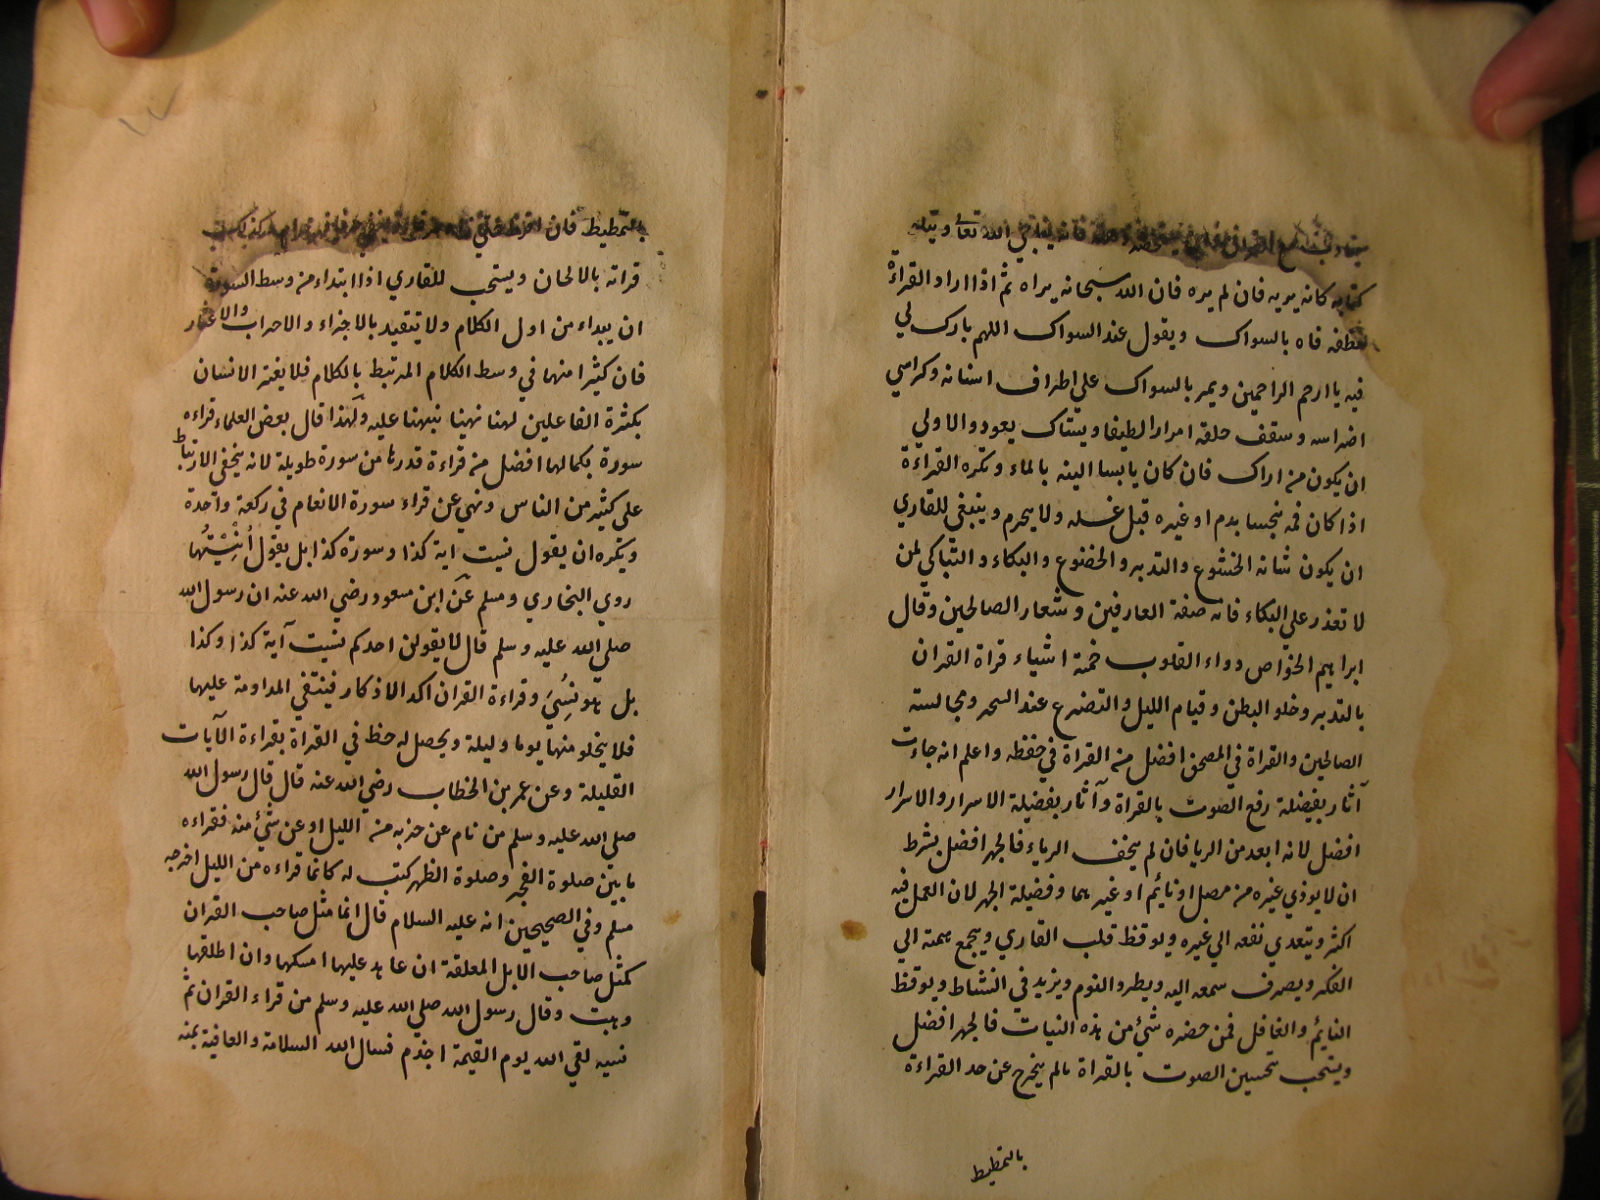 فانه يناجي الله تعالى ويتلو
كتابه كانه يريه فان لم يره فان الله سبحانه يراه ثم اذا اراد القراءة
نظف فاه بالسواك ويقول عند السواك اللهم بارك لي
فيه يا ارحم الراحمين ويمر بالسواك علي اطراف اسنانه وكراسي
اضراسه وسقف حلقه امرارا لطيفا ويستاك بعود والاولي
ان يكون من اراك فان كان يابسا الينه بالماء وتكره القراءة
اذا كان فمه نجسا بدم او غيره قبل غسله ولا يحرم وينبغي للقاري
ان يكون شانه الخشوع والتدبر والخضوع والبكاء والتباكي لمن
لا تعذر علي البكاء فانه صفة العارفين وشعار الصالحين وقال
ابراهيم الخواص دواء القلوب خمسة اشياء قراة القران
بالتدبر وخلو البطن وقيام الليل والتضرع عند السحر ومجالسته
الصالحين والقراة في المصحف افضل من القراة في حفظه واعلم انه جاءت
آثار بفضيلة رفع الصوت بالقراة وآثار بفضيلة الاسرار والاسرار
افضل لانه ابعد من الريا فان لم يخف الرياء فالجهر افضل بشرط
ان لا يوذي غيره من مصل او نايم او غيرهما وفضيلة الجهر لان العمل فيه
اكثر ويتعدي نفعه الي غيره ويوقظ قلب القاري ويجمع همته الي
الفكر ويصرف سمعه اليه ويطرد النوم ويزيد في النشاط ويوقظ
النايم والغافل فمن حضره شئ من هذه النيات فالجهر افضل
ويستحب تحسين الصوت بالقراة مالم يخرج عن حد القراءة
بالتمطيط
بالتمطيط فان
قراته بالالحان ويستحب للقاري اذا ابتداء من وسط السورة
ان يبداء من اول الكلام ولا تتقيد بالاجزاء والاحزاب والاعشار
فان كثيرا منها في وسط الكلام المرتبط بالكلام فلا يغتر الانسان
بكثرة الفاعلين لهنا نهينا نبهنا عليه ولهذا قال بعض العلماء قراءه
سورة بكمالها افضل من قراءة قدرها من سورة طويلة لانه يخفي الارتباط
علي كثير من الناس ونهي عن قراء سورة الانعام في ركعة واحدة
ويكره ان يقول نسيت اية كذا وسورة كذا بل يقول اُنْسِيْتُها
روي البخاري ومسلم عن ابن مسعود رضي الله عنه ان رسول الله
صلي الله عليه وسلم قال لا يقولن احدكم نسيت آية كذا وكذا
بل هو نُسِّيَ وقراءة القران اكد الاذكار فينتفي المداومة عليها
فلا يخلو منها يوما وليلة ويحصل له حظ في القراة بقراءة الآيات
القليلة وعن عمر بن الخطاب رضي الله عنه قال قال رسول الله
صلي الله عليه وسلم من نام عن حزبه من الليل او عن شئ منه فقراءه
ما بين صلوة الفجر وصلوة الظهر كتب له كانما قراءه من الليل اخرجه
مسلم وفي الصحيحين انه عليه السلام قال انما مثل صاحب القران
كمثل صاحب الابل المعلقة ان عاهد عليها امسكها وان اطلقها
وهبت وقال رسول الله صلي الله عليه وسلم من قراء القران ثم
نسيه لقي الله يوم القيمة اجذم فنسال الله السلامة والعافية بمنه